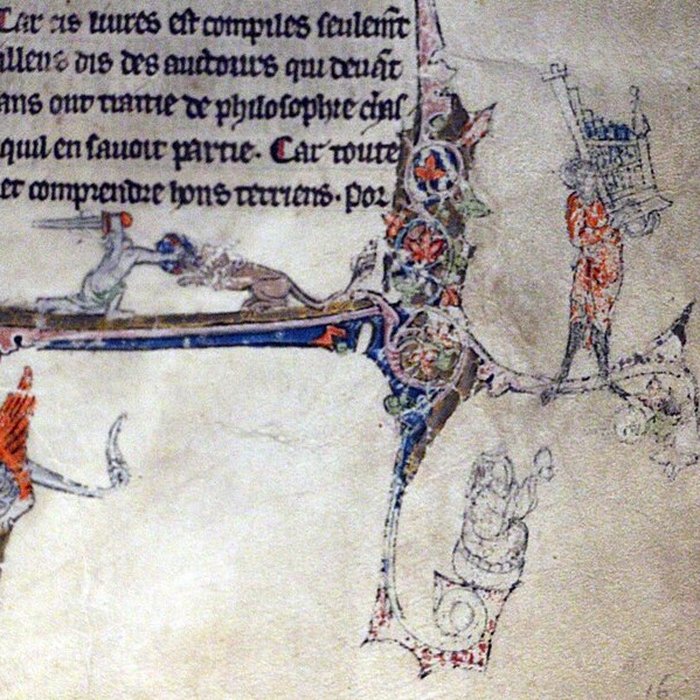 Car cis liures est compiles seulemt
dis des auctours qui deuāt
ans ont traitie de philosophie chas
quil en sauoit partie. Car toute
et comprendre hons terriens. Por